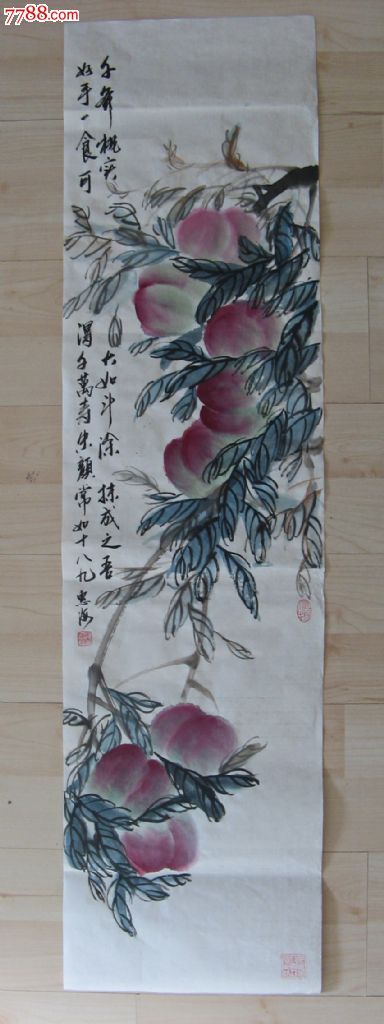 7788.com
千年桃实大如斗涂抹成之吾
好手一食可得千萬寿朱顔常如十八九